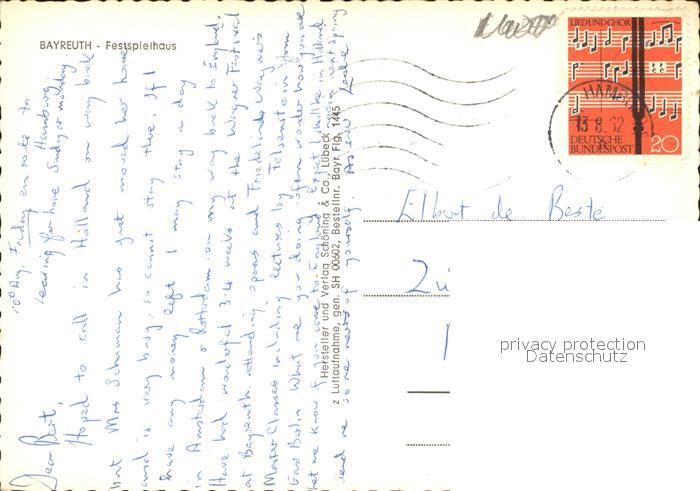 BAYREUTH - Festspielhaus
10th Aug. Friday en route to
Hamburg
Leaving for home Sunday or monday
Dear Bert,
Hoped to call in Holland on way back
but Mrs Schuman has just moved her house
and is very busy, so cannot stay there. If I
have any money left I may stay a day
in Amsterdam or Rotterdam on my way back to England.
Have had wonderful 3-4 weeks at the Wagner Festival
at Bayreuth attending operas and Friedelind Wagner's
Master Classes including lectures by Felsenstein from
East Berlin. What are you doing, often wonder how you are
Let me know if you come to England. Expect I will be in Holland
again next Spring
Send me some news of yourself. As ever
Hersteller und Verlag Schöning & Co., Lübeck
z Luftaufnahme, gen. SH 00602, Bestellnr. Bayr. Flg. 1445
LIED UND CHOR
HAMBURG
13.8.62
DEUTSCHE
BUNDESPOST 20
Elbert de Beste
Zü
privacy protection
Datenschutz